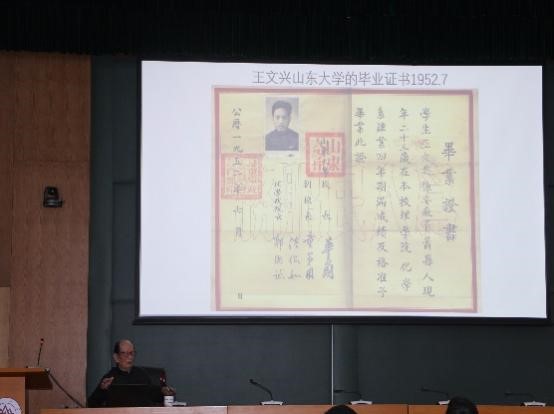 王文兴山东大学的毕业证书1952.7
畢業證書
學生王文兴係安徽省蕭縣人現
年二十歲在本校理學院化學
系肄業年期滿成績及格准予
畢業此證
校長 華崗
副校長 童第周
陸侃如
院長 郭貽誠
公曆一九五二年七月 日
山東